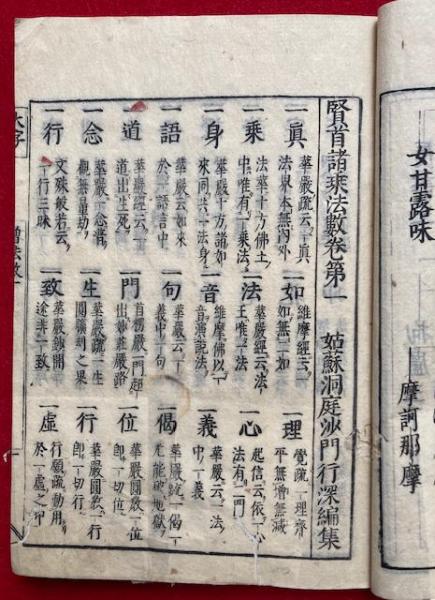 女甘露味
摩訶那摩
賢首諸乘法數卷第一 姑蘇洞庭沙門行深編集
一眞 華嚴疏云一眞
法界本無內外
一如 維摩經云
如無二如
一理 覺疏一理齊
平無增無減
一乘 法華十方佛土
中唯有一乘法
一法 華嚴經云法
王唯一法
一心 起信云依一心
法有二門
一身 華嚴十方諸如
來同共一法身
一音 維摩佛以一
音演說法
一義 華嚴云一法
中一義
一語 華嚴云如來
於一語言中
一句 華嚴云一
義中一句
一偈 華嚴疏一偈
能破地獄
一道 華嚴云一
道出生死
一門 首楞嚴一門超
出妙莊嚴路
一位 華嚴圓教一位
即一切位
一念 華嚴一念普
觀無量劫
一生 華嚴疏一生
圓曠劫之果
一行 華嚴圓教一行
即一切行
一行 文殊般若云
一行三昧
一致 華嚴鈔開
途非一致
一虛 行願疏動用
於一虛之中